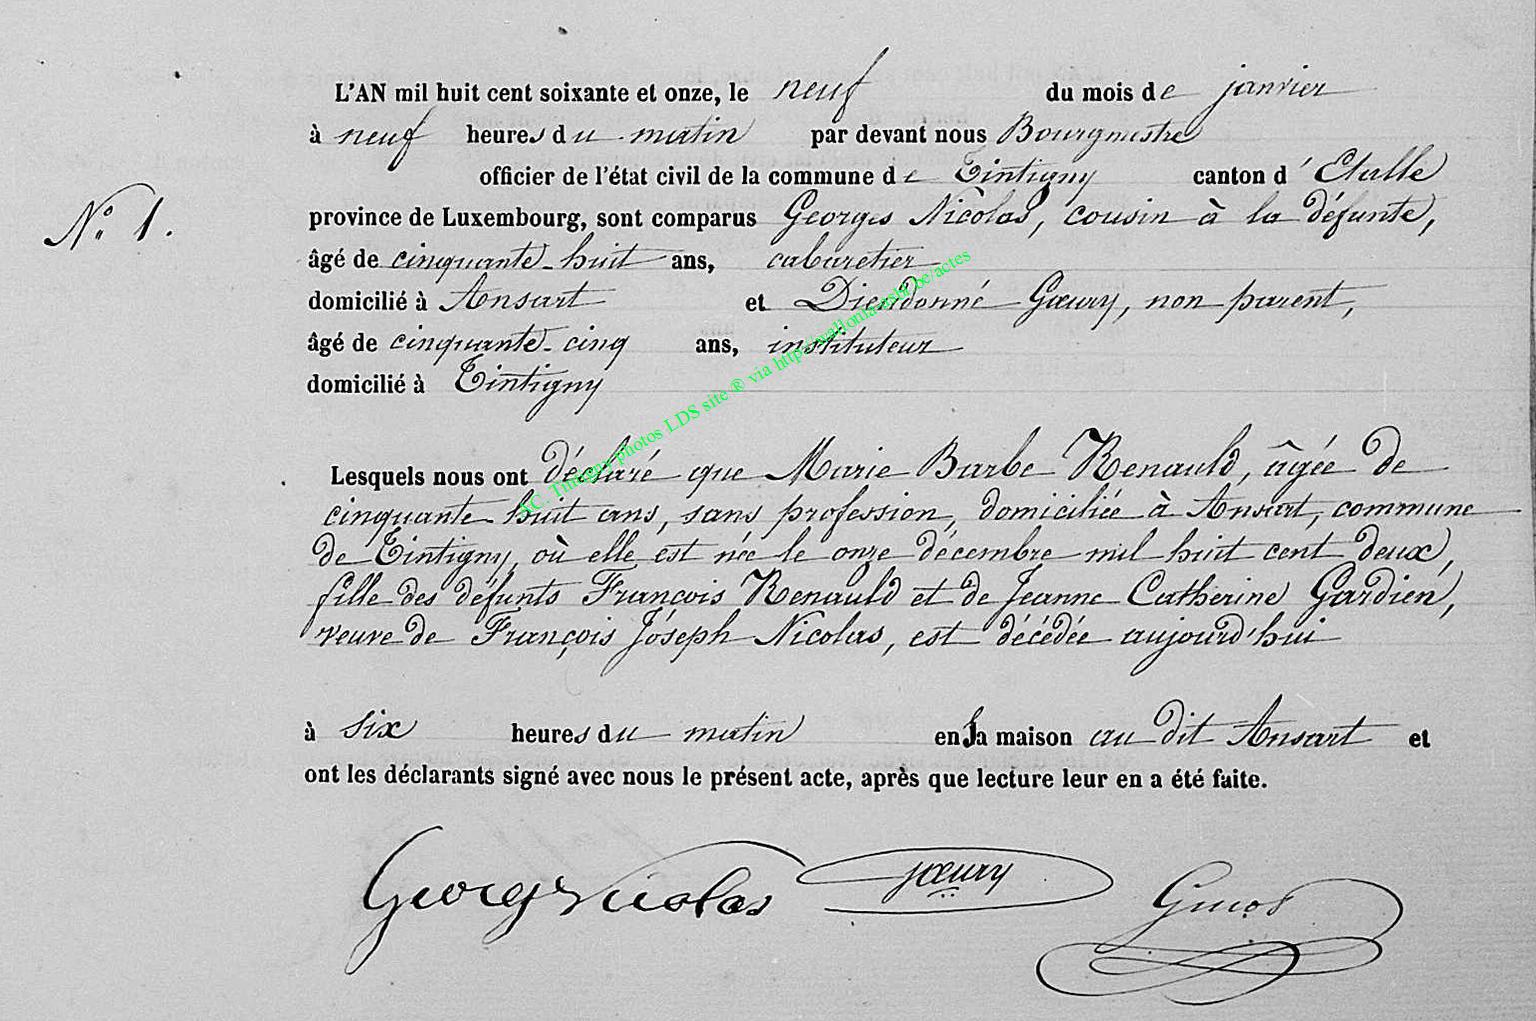 L'AN mil huit cent soixante et onze, le neuf du mois de janvier
à neuf heures du matin par devant nous Bourgmestre
officier de l'état civil de la commune de Tintigny canton d'Etalle
N° 1.
province de Luxembourg, sont comparus Georges Nicolas, cousin à la défunte,
âgé de cinquante-huit ans, cabaretier
domicilié à Ansart et Dieudonné Gœury, non parent,
âgé de cinquante-cinq ans, instituteur
domicilié à Tintigny
AC Tintigny photos LDS site ® via http://wallonia-asbl.be/actes
Lesquels nous ont déclaré que Marie Barbe Renauld, âgée de
cinquante huit ans, sans profession, domiciliée à Ansart, commune
de Tintigny, où elle est née le onze décembre mil huit cent deux,
fille des défunts François Renauld et de Jeanne Catherine Gardien,
veuve de François Joseph Nicolas, est décédée aujourd'hui
à six heures du matin en sa maison au dit Ansart et
ont les déclarants signé avec nous le présent acte, après que lecture leur en a été faite.
Georges Nicolas gœury